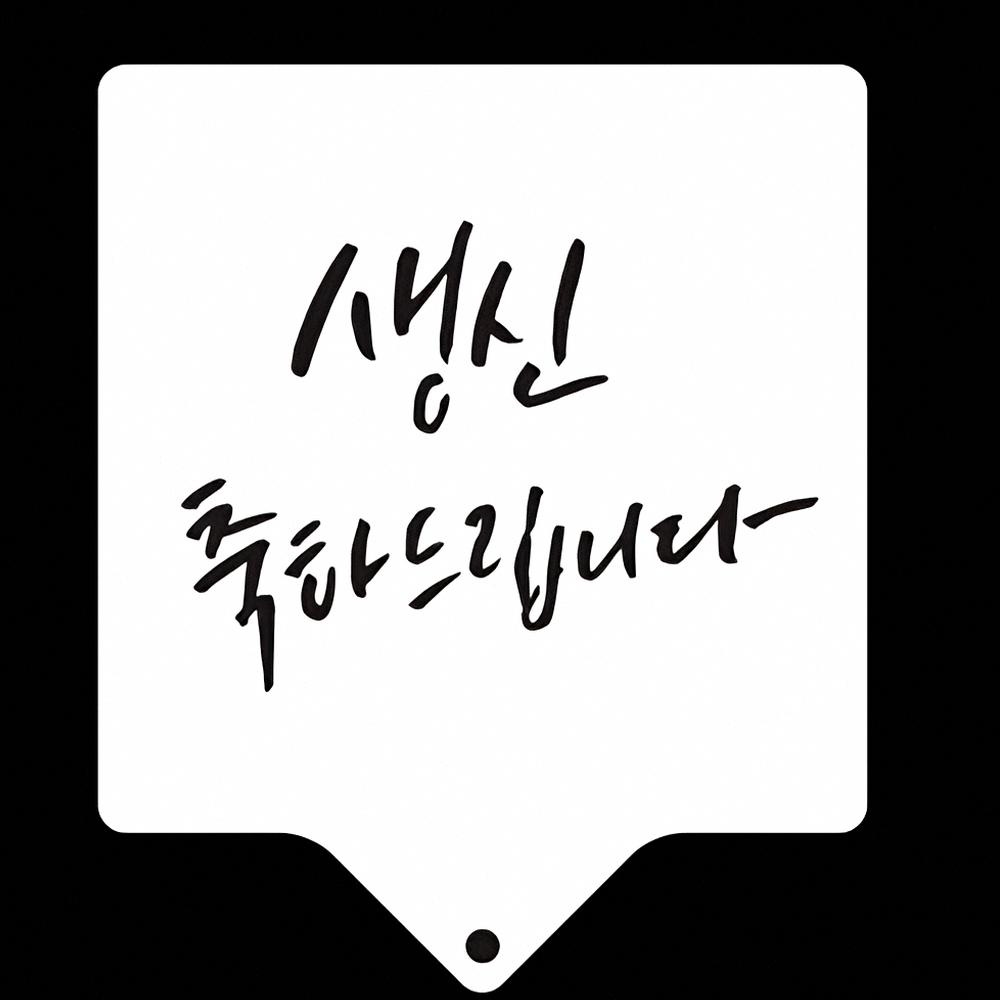 생신
축하드립니다